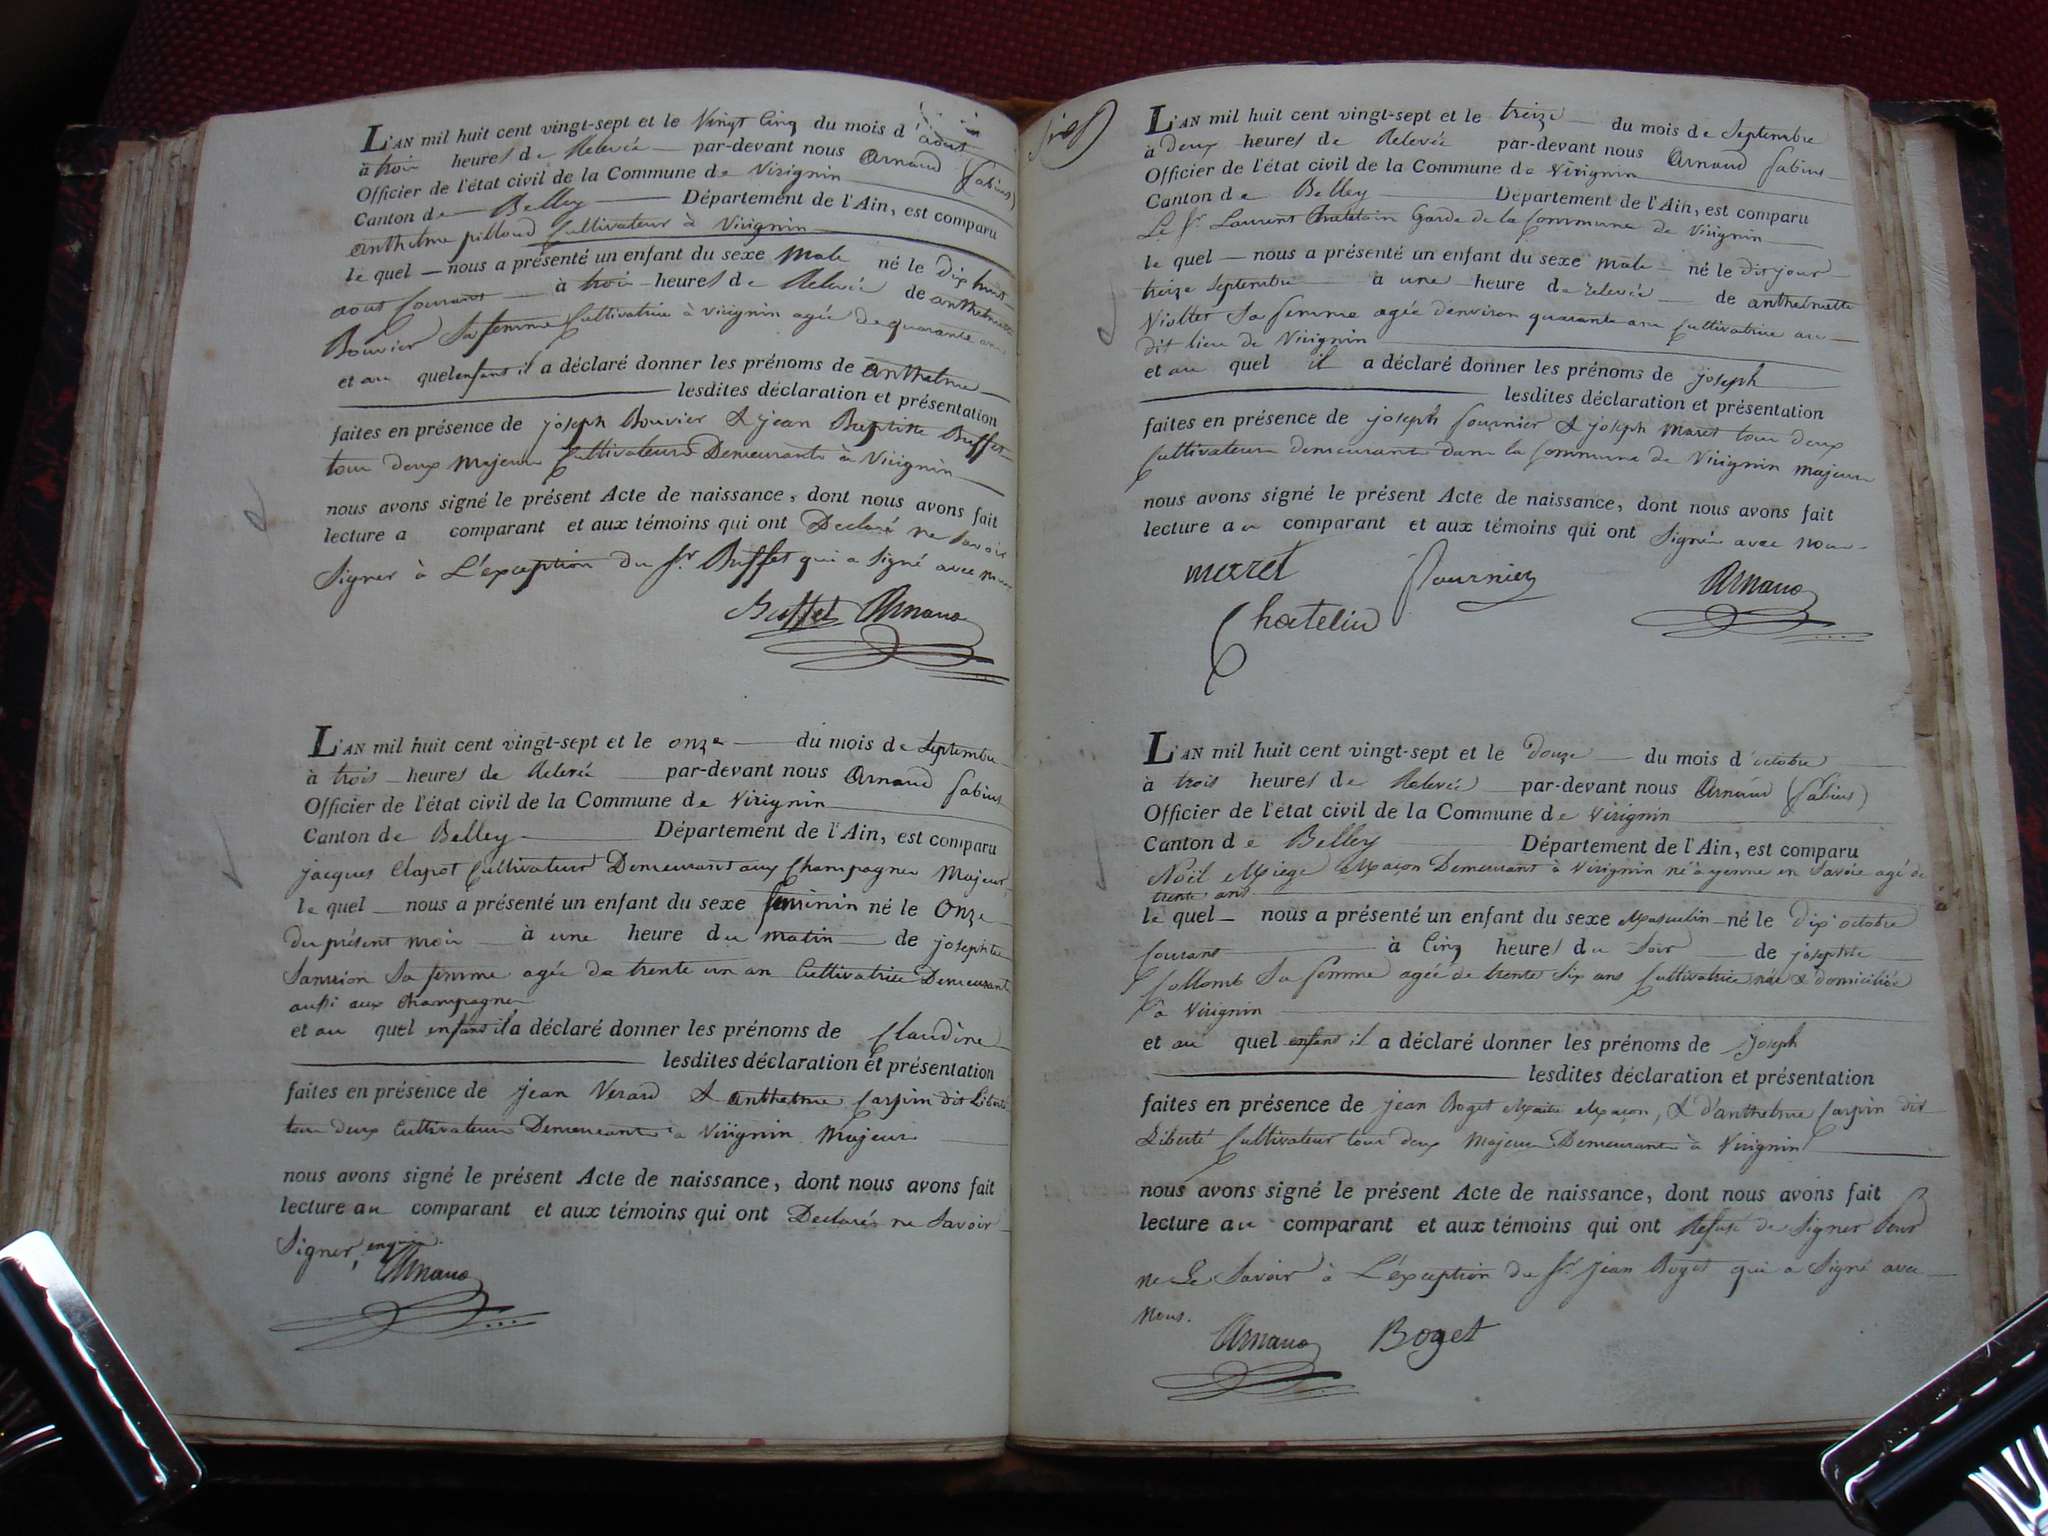 L'AN mil huit cent vingt-sept et le Vingt Cinq du mois d'aout
à trois heures de Relevée par-devant nous Arnaud (fabius)
Officier de l'état civil de la Commune de Virignin
Canton de Belley Département de l'Ain, est comparu
anthelme pilloud Cultivateur à Virignin
le quel nous a présenté un enfant du sexe Male né le dix huit
aout Courant à trois heures de Relevée de anthelmette
Bouvier Sa femme Cultivatrice à virignin agée de quarante ans
et au quel enfant il a déclaré donner les prénoms de anthelme
lesdites déclaration et présentation
faites en présence de joseph Bouvier & jean Baptiste Buffet
tous deux Majeurs Cultivateurs Demeurants à Virignin
nous avons signé le présent Acte de naissance, dont nous avons fait
lecture a comparant et aux témoins qui ont Declaré ne Savoir
Signer à L'exception du Sr. Buffet qui a signé avec nous
Buffet Arnaud
L'AN mil huit cent vingt-sept et le onze du mois de Septembre
à trois heures de Relevée par-devant nous Arnaud fabius
Officier de l'état civil de la Commune de Virignin
Canton de Belley Département de l'Ain, est comparu
jacques Clapot Cultivateur Demeurant aux Champagnes Majeur
le quel nous a présenté un enfant du sexe feminin né le Onze
du présent mois à une heure du matin de josephte
Sa femme agée de trente un an Cultivatrice Demeurante
aussi aux Champagnes
et au quel enfant il a déclaré donner les prénoms de Claudine
lesdites déclaration et présentation
faites en présence de jean Verard & anthelme Carpin dit Liberté
tous deux Cultivateurs Demeurants à Virignin Majeurs
nous avons signé le présent Acte de naissance, dont nous avons fait
lecture au comparant et aux témoins qui ont Declarés ne Savoir
Signer,
Arnaud
L'AN mil huit cent vingt-sept et le treize du mois de Septembre
à deux heures de Relevée par-devant nous Arnaud fabius
Officier de l'état civil de la Commune de Virignin
Canton de Belley Département de l'Ain, est comparu
Le Sr. Laurent Chatelain Garde de la Commune de Virignin
le quel nous a présenté un enfant du sexe male né le dit jour
treize Septembre à une heure de relevée de anthelmette
Viollet Sa femme agée d'environ quarante ans Cultivatrice au
dit lieu de Virignin
et au quel il a déclaré donner les prénoms de joseph
lesdites déclaration et présentation
faites en présence de joseph fournier & joseph Maret tous deux
Cultivateurs demeurants dans la Commune de Virignin majeurs
nous avons signé le présent Acte de naissance, dont nous avons fait
lecture au comparant et aux témoins qui ont Signés avec nous
maret fournier Arnaud
Chatelin
L'AN mil huit cent vingt-sept et le Douze du mois d'octobre
à trois heures de Relevée par-devant nous Arnaud (fabius)
Officier de l'état civil de la Commune de Virignin
Canton de Belley Département de l'Ain, est comparu
Noël Miège Maçon Demeurant à Virignin né à yenne en Savoie agé de
trente ans
le quel nous a présenté un enfant du sexe Masculin né le dix octobre
Courant à Cinq heures du Soir de josephte
Collomb Sa femme agée de trente Six ans Cultivatrice née & domiciliée
à Virignin
et au quel enfant il a déclaré donner les prénoms de Joseph
lesdites déclaration et présentation
faites en présence de jean Boget Maitre Maçon, & d'anthelme Carpin dit
Liberté Cultivateur tous deux Majeurs Demeurants à Virignin
nous avons signé le présent Acte de naissance, dont nous avons fait
lecture au comparant et aux témoins qui ont Refusé de Signer Pour
ne Le Savoir à L'exception du Sr jean Boget qui a Signé avec
nous.
Arnaud Boget